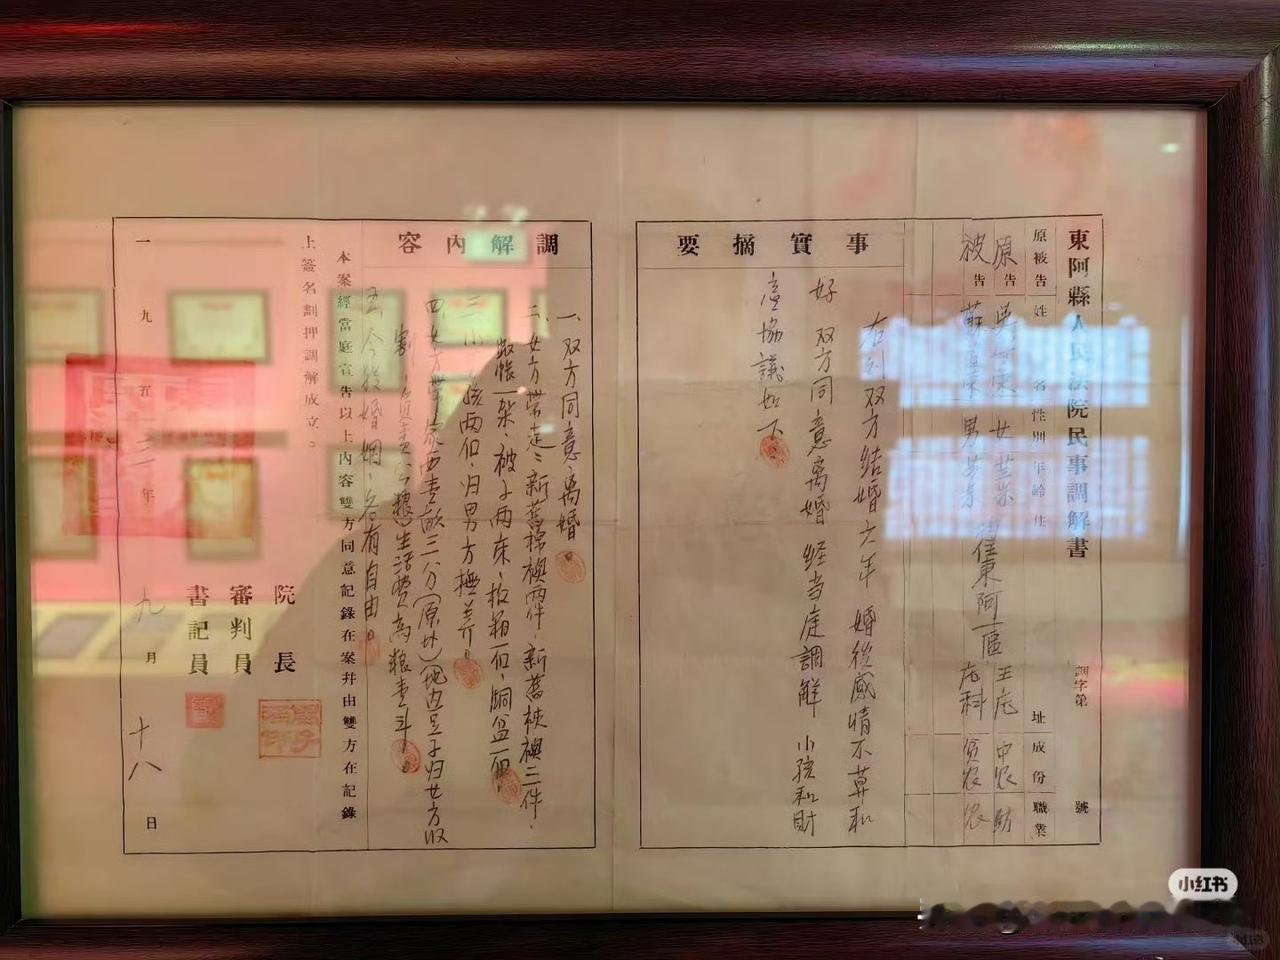 東阿縣人民法院民事調解書
調字第 號
原被告 姓名 性別 年齡 住址 成份 職業
原告 女 王庄 中农
被告 男 住東阿一區 庄科 贫农 农
事實摘要
右列双方结婚六年 婚後感情不莫和
好 双方同意离婚 经当庭調解 小孩和財
產協議如下
調解內容
一、双方同意离婚。
二、女方带走：新舊棉襖两件、新舊裌襖三件、
蚊帐一架、被子两床、板箱一个、銅盆一个。
三、小孩两个、归男方撫养。
四、女方带 壹畝三分(原女)地内豆子归女方收
割(负责公粮)生活费高粮壹斗。
五、今後婚姻、各有自由。
本案經當庭宣告以上內容雙方同意記錄在案幷由雙方在記錄
上簽名劃押調解成立。
院長
審判員
書記員
一九五三年九月十八日
小红书